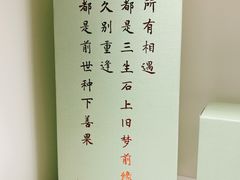 所有相遇
都是三生石上旧梦前缘
久别重逢
都是前世种下善果